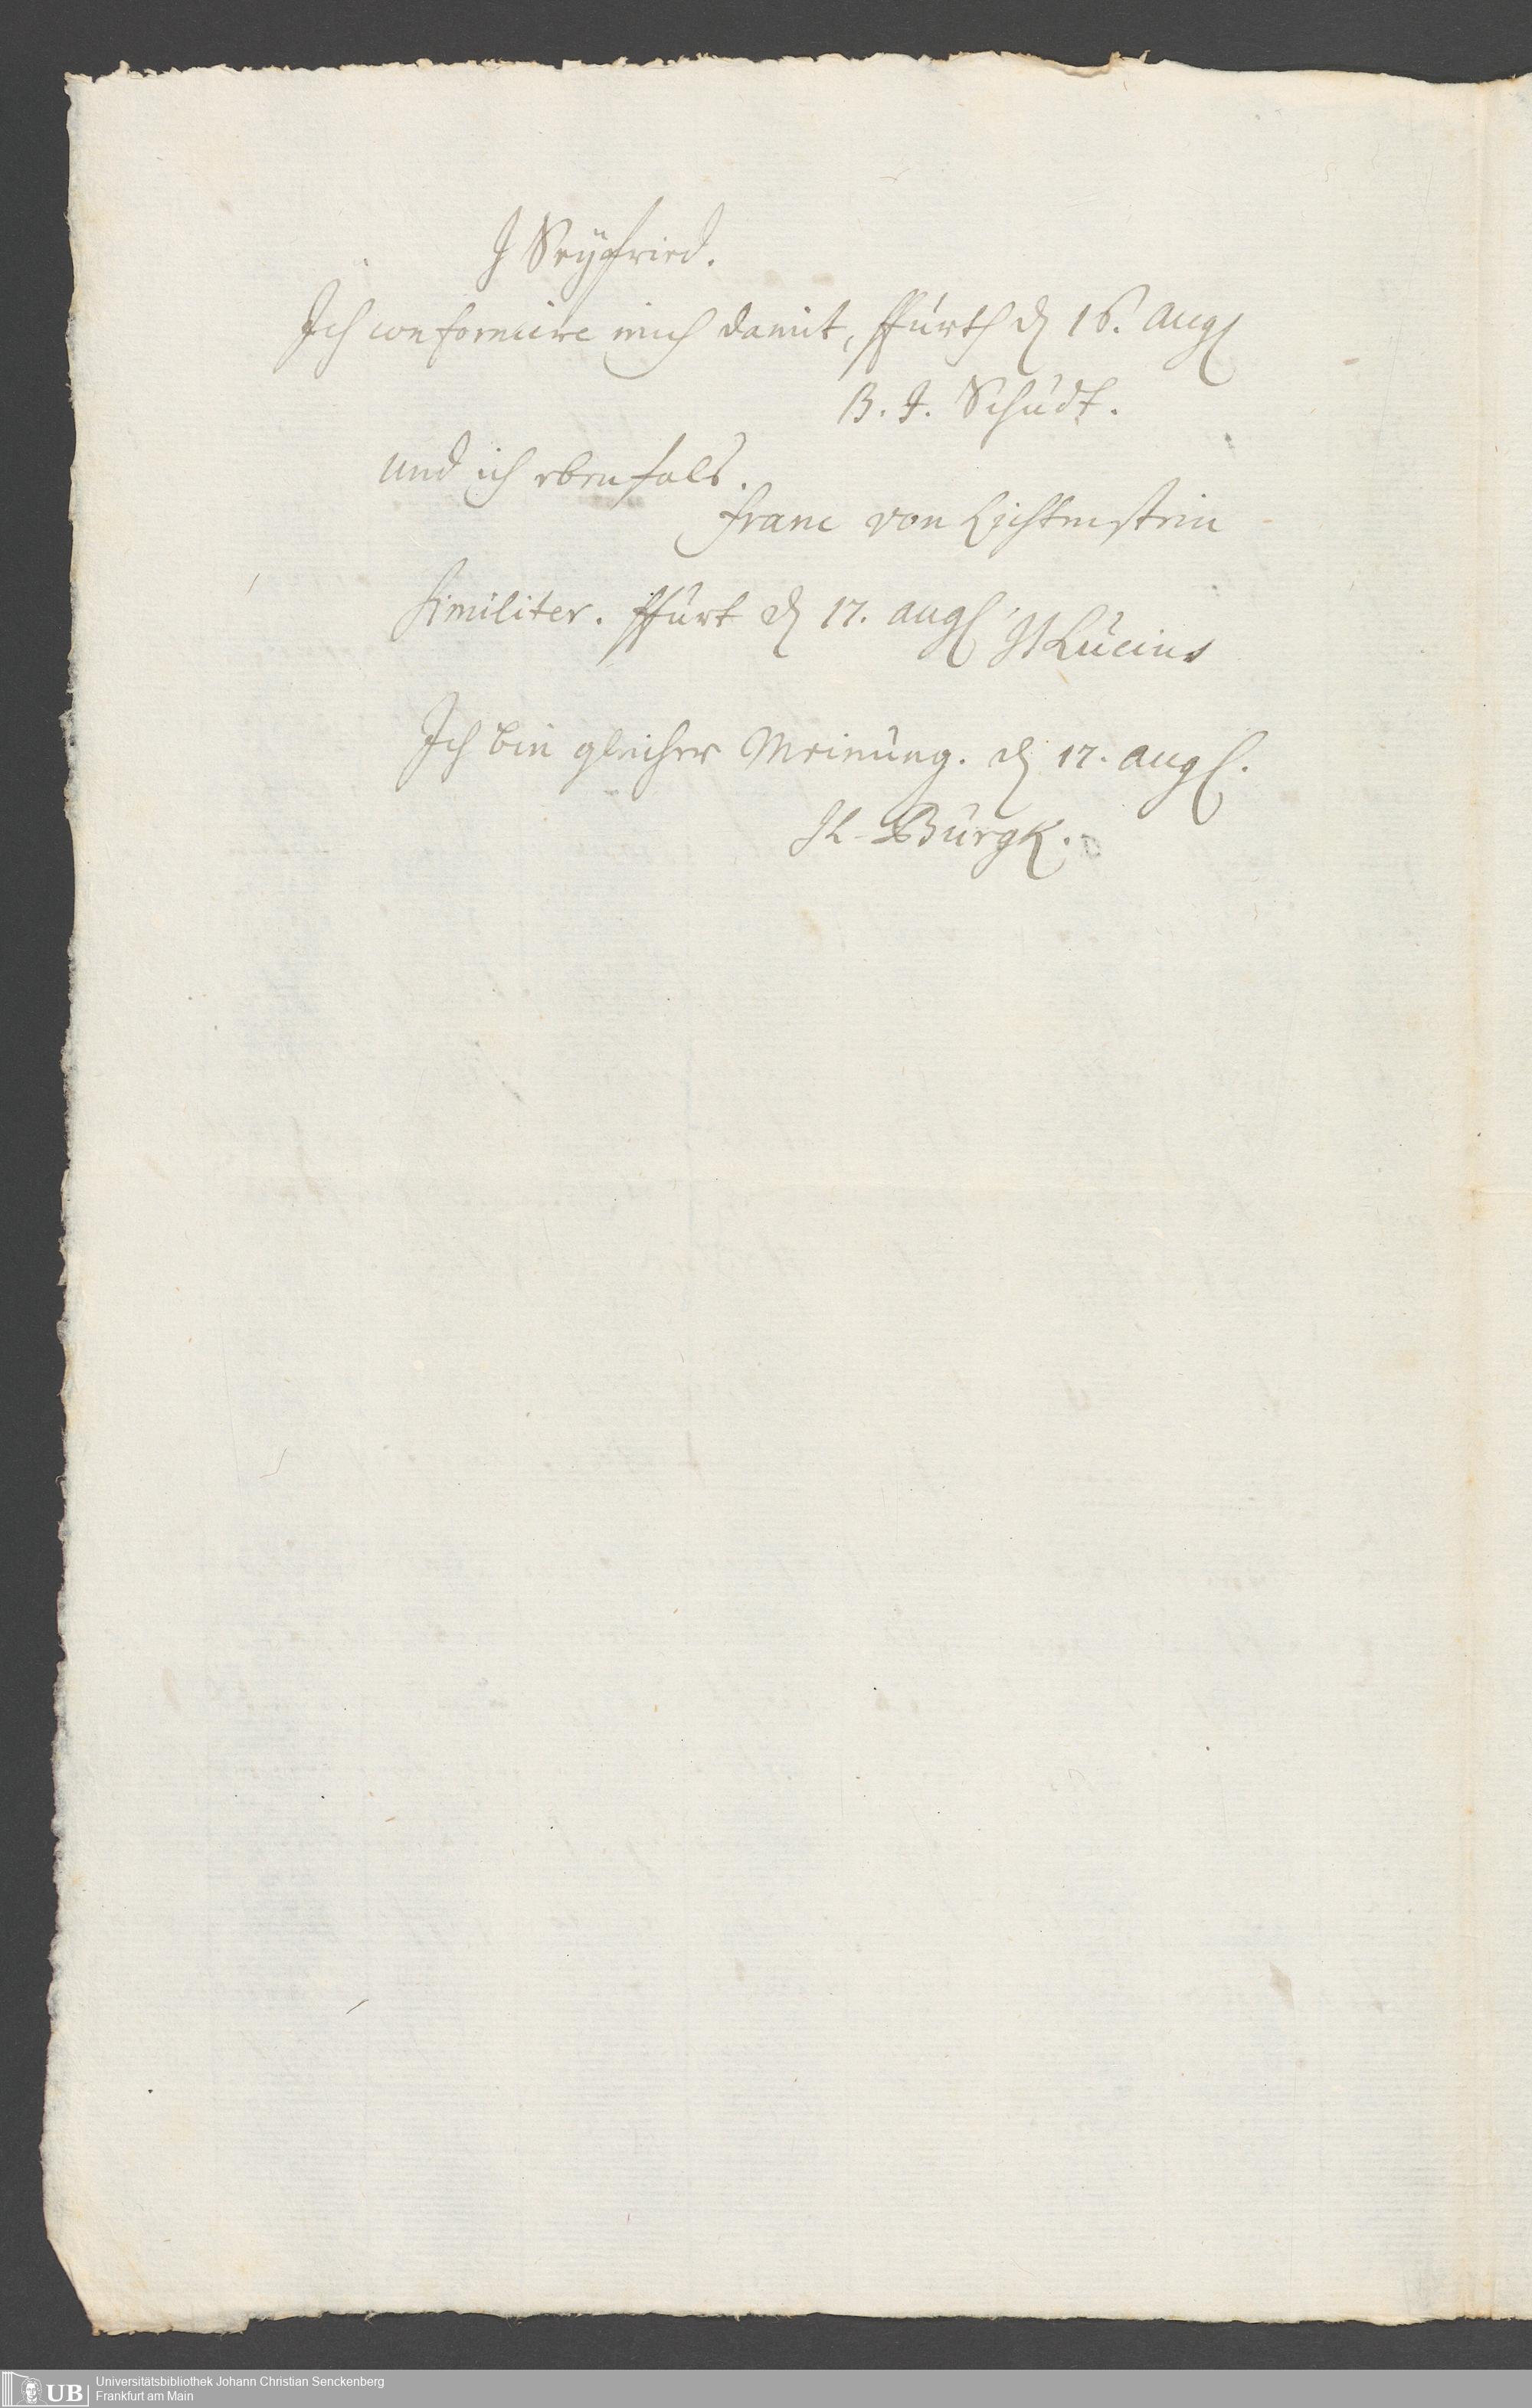 J Seyfried.
Ich conformire mich damit, ffürth d 16. Aug
B. J. Schüdt.
und ich ebenfals.
Franc von Lichtenstein
Similiter. ffürt d 17. aug
Lücius
Ich bin gleicher Meinüng. d 17. aug.
Bürgk.
UB Universitätsbibliothek Johann Christian Senckenberg
Frankfurt am Main